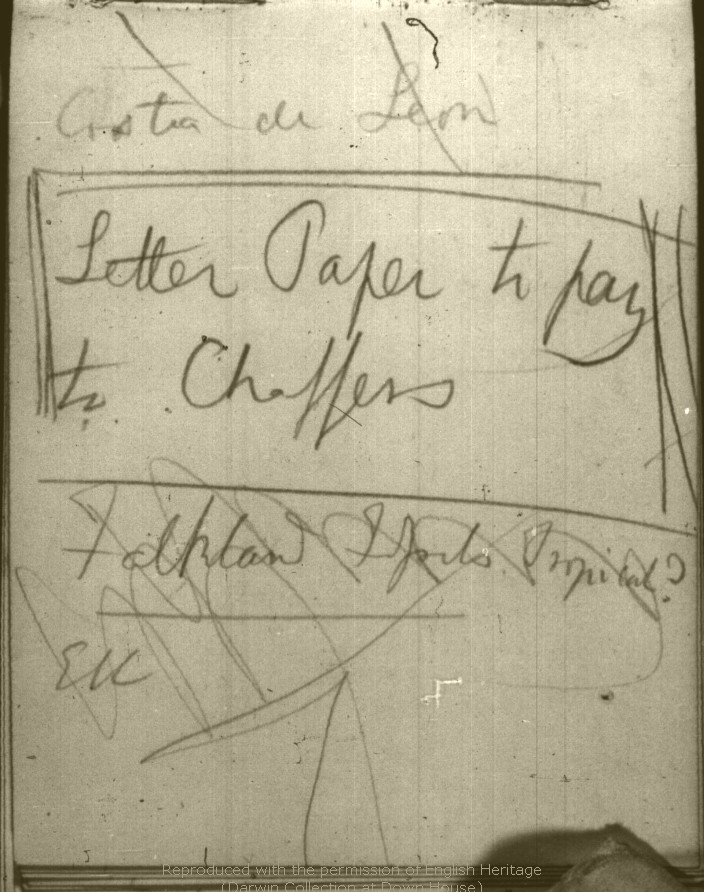 Costra de Leon
Letter Paper to pay
to Chaffers
Falkland Tropical?
Reproduced with the permission of English Heritage
(Darwin Collection at Down House)